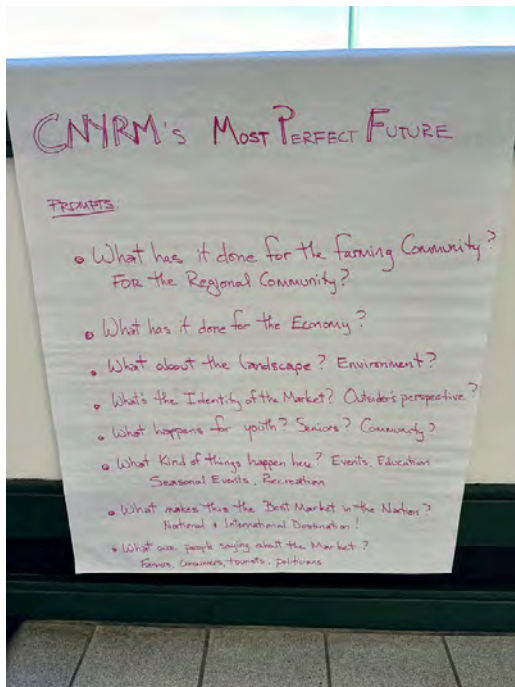 CNYRM's Most Perfect Future
PROMPTS:
• What has it done for the farming Community?
FOR the Regional Community?
• What has it done for the Economy?
• What about the landscape? Environment?
• What's the Identity of the Market? Outsider's perspective?
• What happens for youth? Seniors? Community?
• What Kind of things happen here? Events, Education
Seasonal Events, Recreation
• What makes this the Best Market in the Nation?
National & International Destination!
• What are people saying about the Market?
Farmers, consumers, tourists, politicians